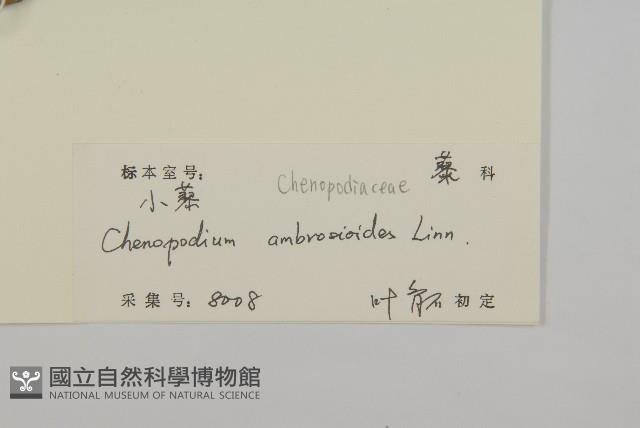 标本室号: Chenopodiaceae 藜 科
小藜
Chenopodium ambrosioides Linn.
采集号: 8008 叶 初定
國立自然科學博物館
NATIONAL MUSEUM OF NATURAL SCIENCE